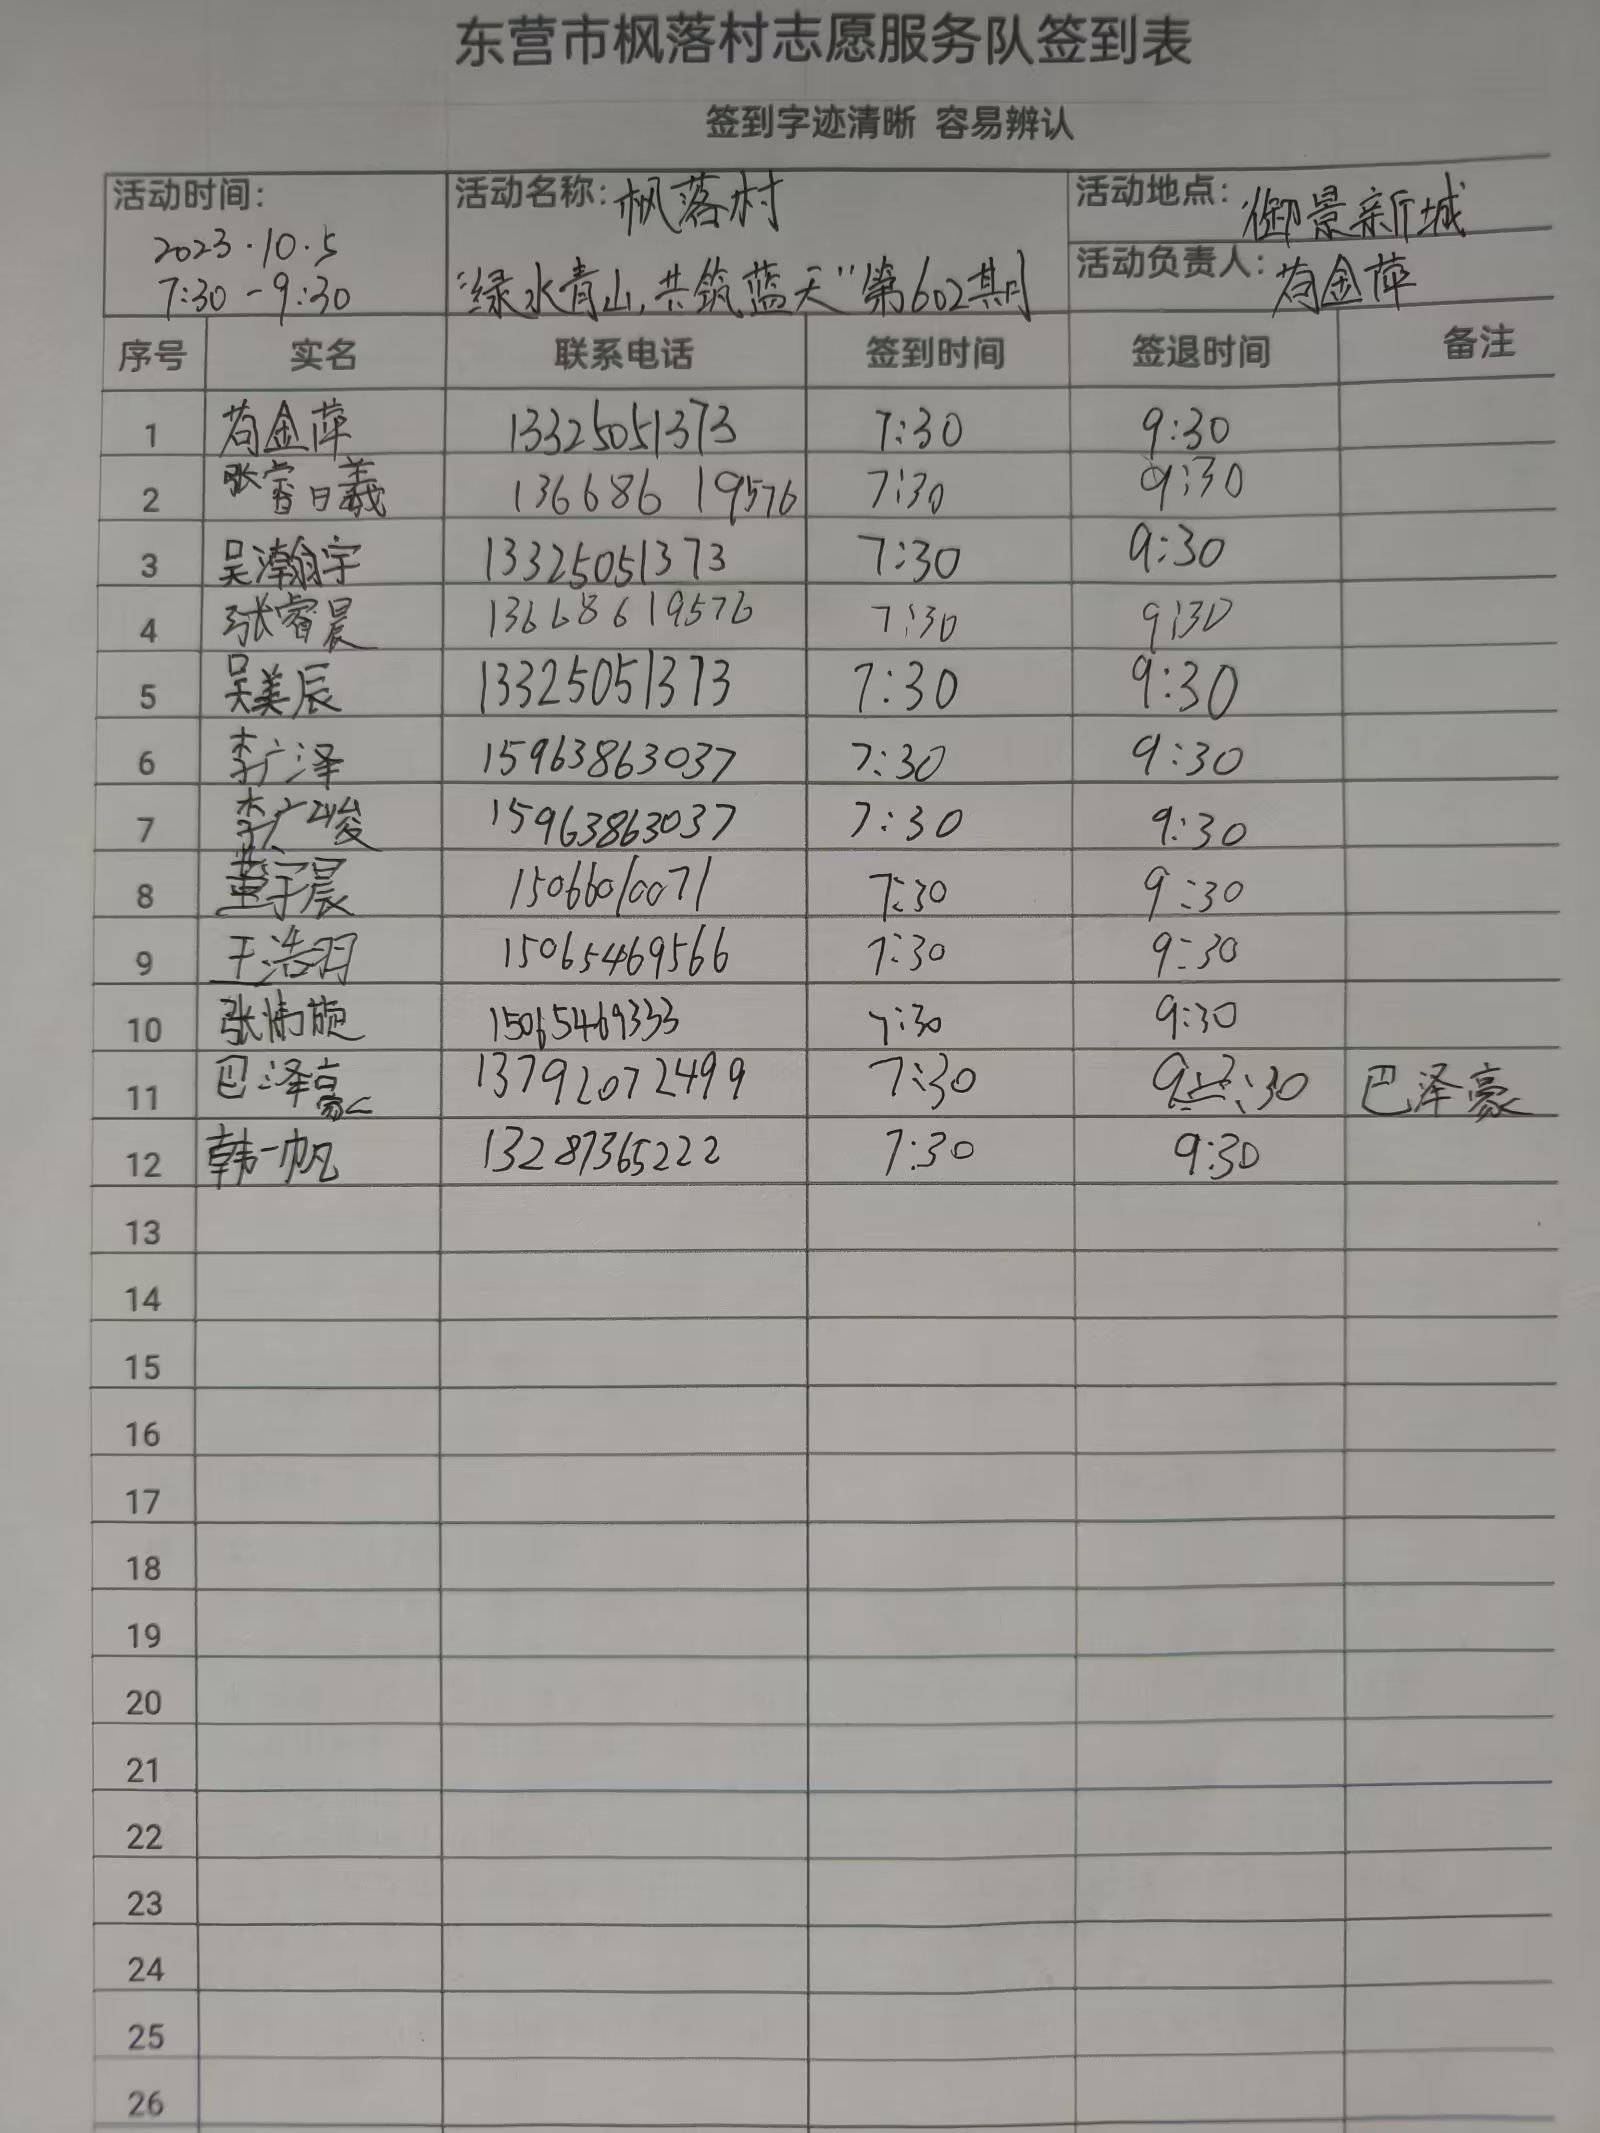 东营市枫落村志愿服务队签到表
签到字迹清晰 容易辨认
活动时间: 2023.10.5 7:30-9:30
活动名称: 枫落村 "绿水青山,共筑蓝天"第602期
活动地点: 御景新城
活动负责人: 苟金萍
序号 实名 联系电话 签到时间 签退时间 备注
1 苟金萍 13325051373 7:30 9:30
2 张睿曦 13668619576 7:30 9:30
3 吴瀚宇 13325051373 7:30 9:30
4 张睿晨 13668619576 7:30 9:30
5 吴美辰 13325051373 7:30 9:30
6 李广泽 15963863037 7:30 9:30
7 李广峻 15963863037 7:30 9:30
8 董子晨 15066010071 7:30 9:30
9 王浩羽 15065469566 7:30 9:30
10 张倩旎 15065469333 7:30 9:30
11 巴泽豪 13792072499 7:30 9:30 巴泽豪
12 韩一帆 13287365222 7:30 9:30
13
14
15
16
17
18
19
20
21
22
23
24
25
26